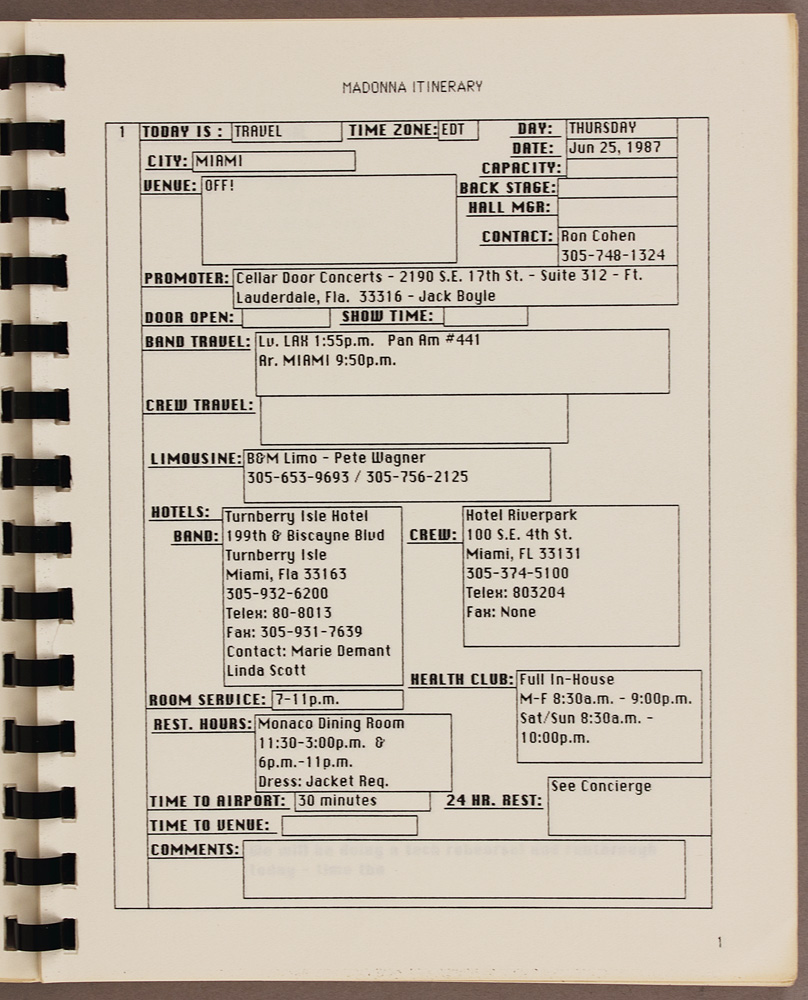 MADONNA ITINERARY
1 TODAY IS : TRAVEL TIME ZONE: EDT DAY: THURSDAY
DATE: Jun 25, 1987
CITY: MIAMI CAPACITY:
VENUE: OFF! BACK STAGE:
HALL MGR:
CONTACT: Ron Cohen
305-748-1324
PROMOTER: Cellar Door Concerts - 2190 S.E. 17th St. - Suite 312 - Ft.
Lauderdale, Fla. 33316 - Jack Boyle
DOOR OPEN: SHOW TIME:
BAND TRAVEL: Lv. LAX 1:55p.m. Pan Am #441
Ar. MIAMI 9:50p.m.
CREW TRAVEL:
LIMOUSINE: B&M Limo - Pete Wagner
305-653-9693 / 305-756-2125
HOTELS:
BAND: Turnberry Isle Hotel
199th & Biscayne Blvd
Turnberry Isle
Miami, Fla 33163
305-932-6200
Telex: 80-8013
Fax: 305-931-7639
Contact: Marie Demant
Linda Scott
CREW: Hotel Riverpark
100 S.E. 4th St.
Miami, FL 33131
305-374-5100
Telex: 803204
Fax: None
HEALTH CLUB: Full In-House
M-F 8:30a.m. - 9:00p.m.
Sat/Sun 8:30a.m. -
10:00p.m.
ROOM SERVICE: 7-11p.m.
REST. HOURS: Monaco Dining Room
11:30-3:00p.m. &
6p.m.-11p.m.
Dress: Jacket Req.
TIME TO AIRPORT: 30 minutes 24 HR. REST: See Concierge
TIME TO VENUE:
COMMENTS:
1